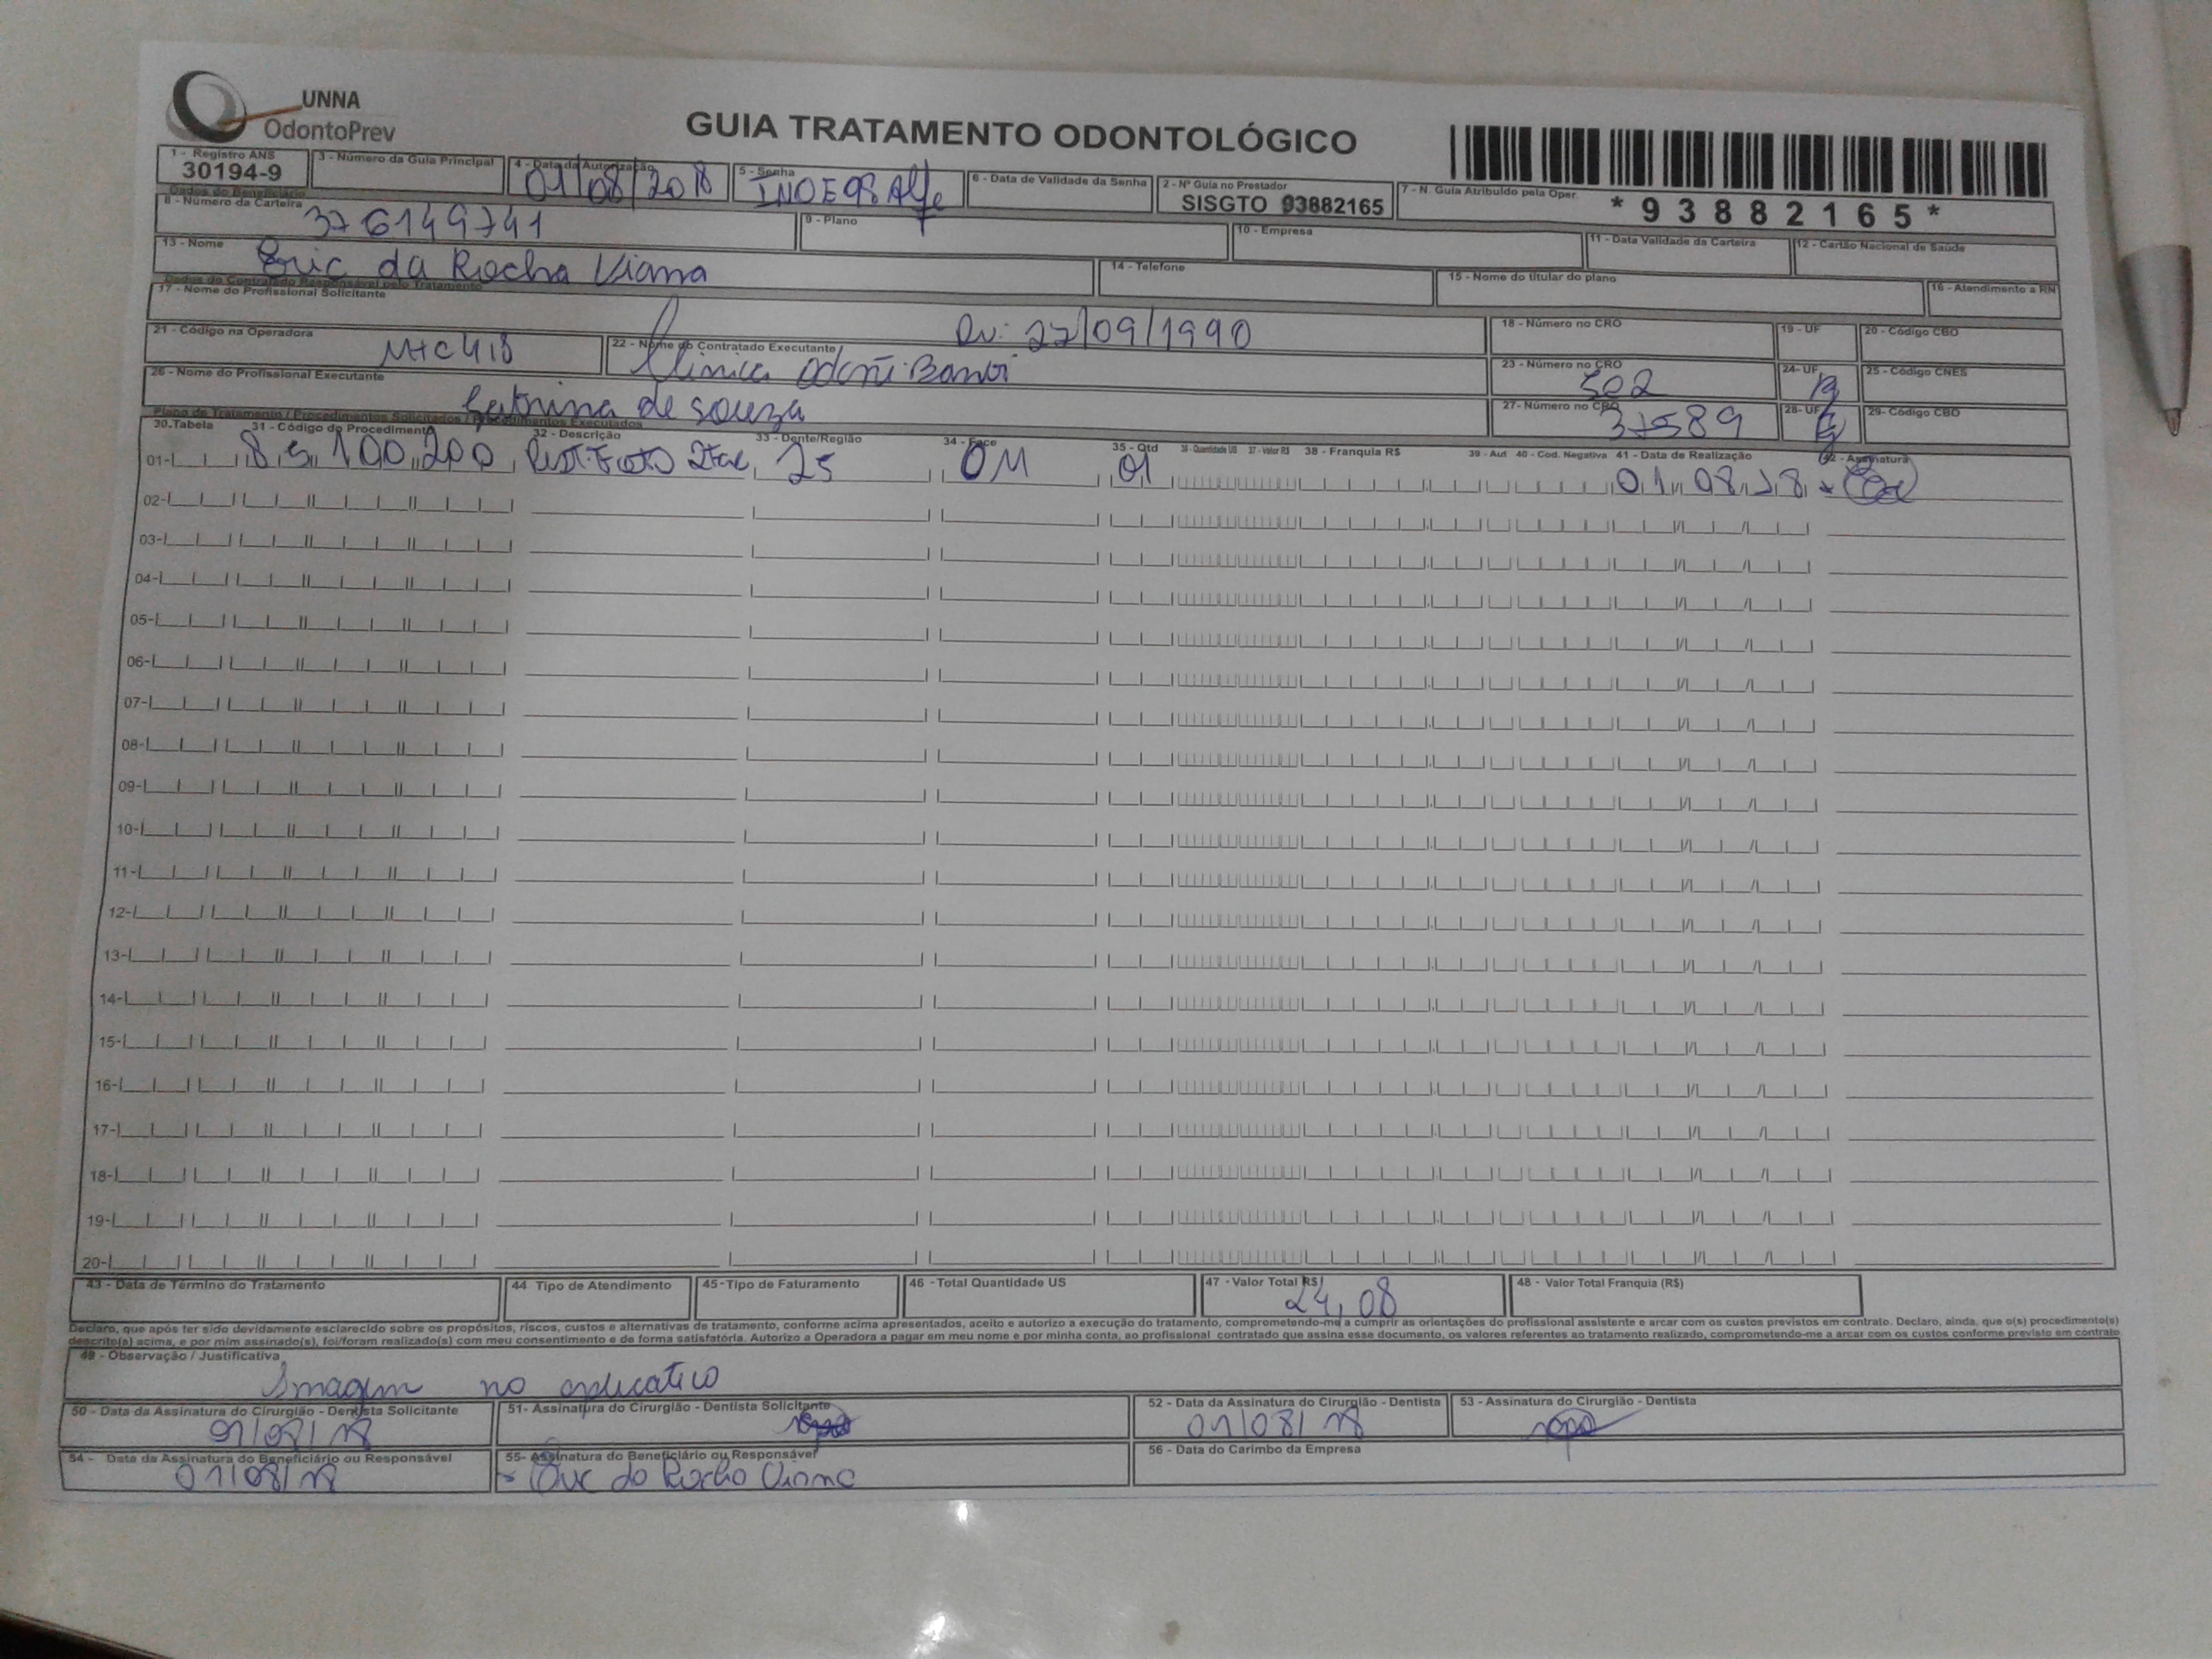 UNNA
OdontoPrev
GUIA TRATAMENTO ODONTOLÓGICO
1 - Registro ANS
30194-9
3 - Número da Guia Principal
4 - Data da Autorização
01/08/2018
5 - Senha
6 - Data de Validade da Senha
2 - Nº Guia no Prestador
SISGTO 93882165
7 - N. Guia Atribuído pela Oper.
*93882165*
Dados do Beneficiário
8 - Número da Carteira
376149741
9 - Plano
10 - Empresa
11 - Data Validade da Carteira
12 - Cartão Nacional de Saúde
13 - Nome
Eric da Rocha Viana
14 - Telefone
15 - Nome do titular do plano
16 - Atendimento a RN
Dados do Contratado Responsável pelo Tratamento
17 - Nome do Profissional Solicitante
22/09/1990
18 - Número no CRO
19 - UF
20 - Código CBO
21 - Código na Operadora
22 - Nome do Contratado Executante
Clinica
23 - Número no CRO
302
24- UF
25 - Código CNES
26 - Nome do Profissional Executante
de souza
27- Número no CRO
37589
28- UF
29- Código CBO
Plano de Tratamento / Procedimentos Solicitados / Procedimentos Executados
30.Tabela 31 - Código do Procedimento 32 - Descrição 33 - Dente/Região 34 - Face 35 - Qtd 36 - Quantidade US 37 - Valor R$ 38 - Franquia R$ 39 - Aut 40 - Cod. Negativa 41 - Data de Realização 42 - Assinatura
01- 85 100 200 25 OM 01 01 08 18
02-
03-
04-
05-
06-
07-
08-
09-
10-
11-
12-
13-
14-
15-
16-
17-
18-
19-
20-
43 - Data de Término do Tratamento
44 Tipo de Atendimento
45 -Tipo de Faturamento
46 -Total Quantidade US
47 - Valor Total R$
24,08
48 - Valor Total Franquia (R$)
Declaro, que após ter sido devidamente esclarecido sobre os propósitos, riscos, custos e alternativas de tratamento, conforme acima apresentados, aceito e autorizo a execução do tratamento, comprometendo-me a cumprir as orientações do profissional assistente e arcar com os custos previstos em contrato. Declaro, ainda, que o(s) procedimento(s)
descrito(s) acima, e por mim assinado(s), foi/foram realizado(s) com meu consentimento e de forma satisfatória. Autorizo a Operadora a pagar em meu nome e por minha conta, ao profissional contratado que assina esse documento, os valores referentes ao tratamento realizado, comprometendo-me a arcar com os custos conforme previsto em contrato
49 - Observação / Justificativa
Imagem no aplicativo
50 - Data da Assinatura do Cirurgião - Dentista Solicitante
01/08/18
51- Assinatura do Cirurgião - Dentista Solicitante
52 - Data da Assinatura do Cirurgião - Dentista
01/08/18
53 - Assinatura do Cirurgião - Dentista
54 - Data da Assinatura do Beneficiário ou Responsável
01/08/18
55- Assinatura do Beneficiário ou Responsável
Eric da Rocha Viana
56 - Data do Carimbo da Empresa